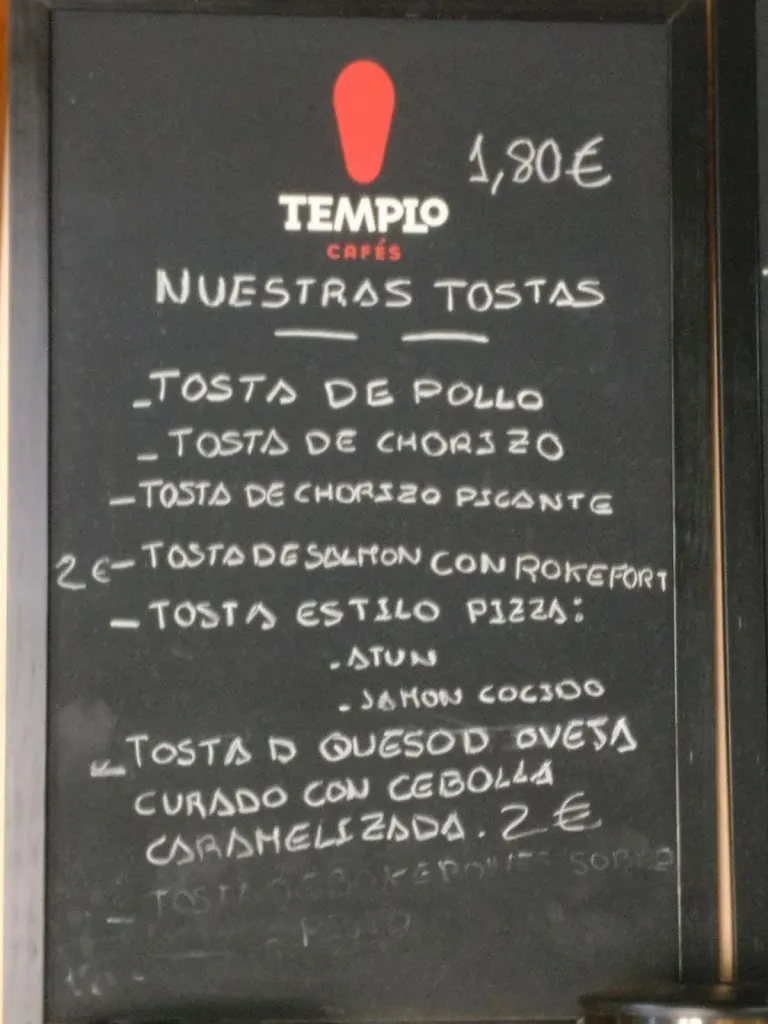 1,80€
TEMPLO
CAFÉS
NUESTRAS TOSTAS
- TOSTA DE POLLO
- TOSTA DE CHORIZO
- TOSTA DE CHORIZO PICANTE
2€ - TOSTA DE SALMON CON ROKEFORT
- TOSTA ESTILO PIZZA:
. ATUN
. JAMON COCIDO
- TOSTA D QUESO D OVEJA
CURADO CON CEBOLLA
CARAMELIZADA. 2€
- TOSTA